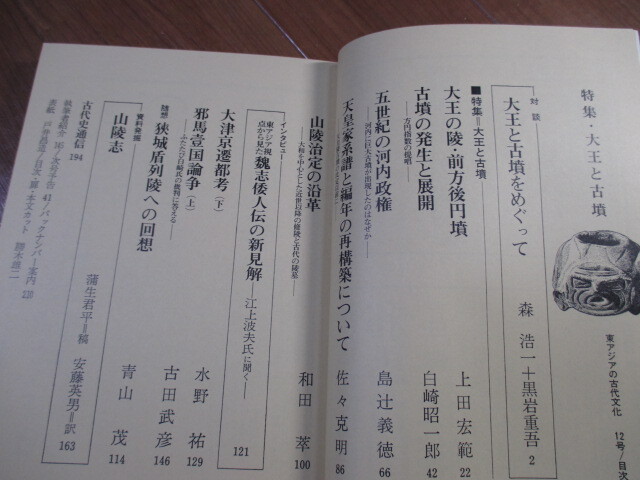 特集・大王と古墳
東アジアの古代文化 12号/目次
対談
大王と古墳をめぐって 森 浩一＋黒岩重吾 2
■特集＝大王と古墳
大王の陵・前方後円墳 上田宏範 22
古墳の発生と展開 白崎昭一郎 42
五世紀の河内政権 島辻義徳 66
——河内に巨大古墳が出現したのはなぜか——
天皇家系譜と編年の再構築について 佐々克明 86
山陵治定の沿革 和田 萃 100
インタビュー
東アジア視点から見た 魏志倭人伝の新見解——江上波夫氏に聞く—— 121
大津京遷都考（下） 水野 祐 129
邪馬壹国論争（上） 古田武彦 146
随想
狭城盾列陵への回想 青山 茂 114
資料発掘
山陵志 蒲生君平＝稿 安藤英男＝訳 163
古代史通信 194